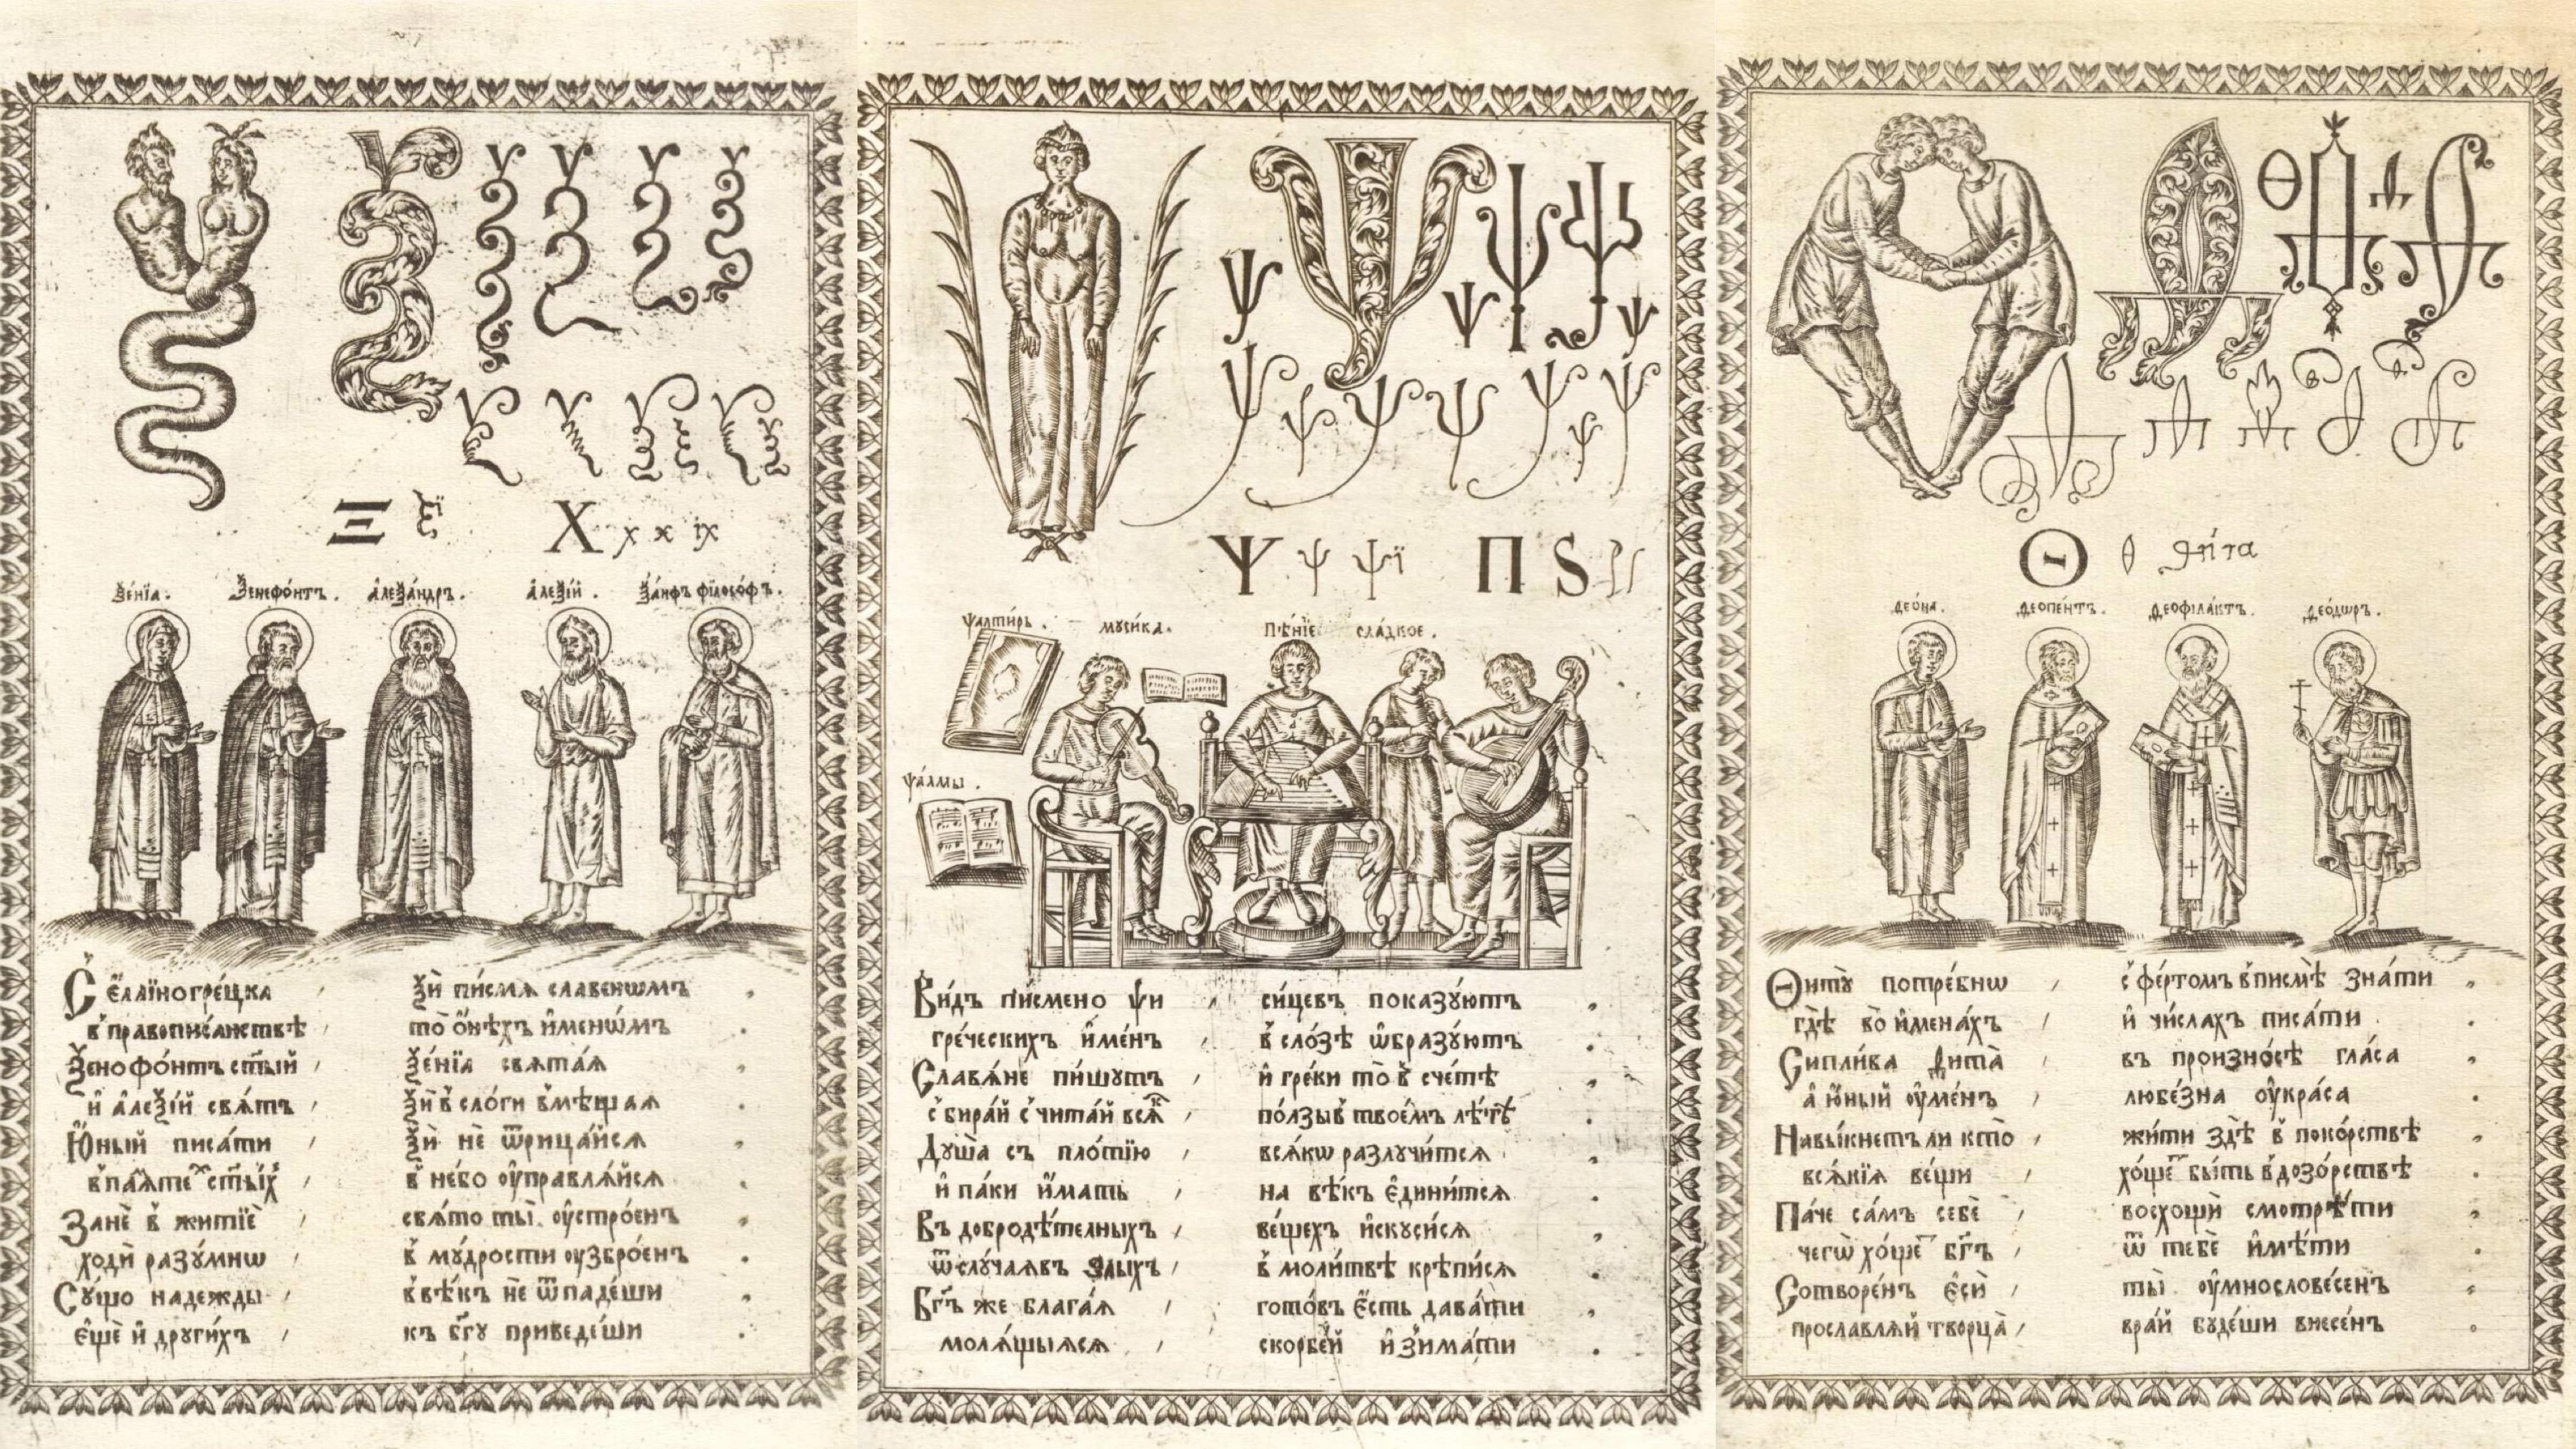 Ξ ѯ̈ Х х х іх
Ѯе́нїа. Ѯенефо́нтъ. Алеѯа́ндръ. Алеѯі́й. Ѯа́нфъ фїлосо́фъ.
С̾ е́ллїногре́цка , ѯѝ пи́смѧ славенѡмъ ,
в̾правописа́нствѣ , то̀ ѻ҆нѣхъ и҆менѡ́мъ .
Ѯенофо́нтъ ст҃ый , ѯе́нїа свѧта́ѧ ,
и҆ а҆леѯі́й свѧ́тъ , ѯѝ в̾ сло́ги в̾мѣщаѧ .
Ю҆́ный писа́ти , ѯѝ нѐ ѿрица́йсѧ ,
в̾па́мѧте ст҃ы́хъ , в̾ не́бо ᲂу҆правлѧ́йсѧ .
Занѐ в̾ житїѐ , свѧ́то ты̀ ᲂу҆стро́енъ ,
ходѝ разꙋ́мнѡ , в̾ мꙋ́дрости ᲂузбро́енъ .
Сꙋ́що надежды , в̾вѣ́къ нѐ ѿпаде́ши ,
є҆щѐ и҆ дрꙋги́хъ , къ бг҃ꙋ приведе́ши .
Ѱ ѱ ѱї П Ѕ
Ѱалти́рь. мꙋси́ка. Пѣ́нїе сла́дкое.
Ѱа́лмы.
Ви́дъ пи́смено ѱи , си́цевъ показꙋ́ютъ ,
гре́ческихъ и҆ме́нъ , в̾ сло́зѣ ѡ҆бразꙋ́ютъ .
Славѧ́не пи́шꙋтъ , и҆ гре́ки то̀ в̾ сче́тѣ ,
с̾бира́й с̾чита́й всѧ́к , по́лзы в̾ твое́мъ лѣ́тѣ .
Дꙋша̀ съ пло́тїю , всѧ́кѡ разлꙋчи́тсѧ ,
и҆ па́ки и҆́мать , на вѣ́къ є҆дини́тсѧ .
Въ добродѣ́телныхъ , ве́щехъ и҆скꙋси́сѧ ,
ѿслꙋ́чаѧвъ злы́хъ , в̾ моли́твѣ крѣпи́сѧ .
Бг҃ъ же блага́ѧ , гото́въ є҆́сть дава́ти ,
молѧ́щыѧсѧ , скорбе́й и҆зима́ти .
Ѳ ѳ ѳи́та
Ѳео́на. Ѳеопе́нтъ. Ѳеофїла́ктъ. Ѳео́дѡръ.
Ѳитꙋ̀ потре́бнѡ , с̾ фе́ртомъ в̾писмѣ̀ зна́ти ,
гдѣ̀ во и҆мена́хъ , и҆ чи́слахъ писа́ти .
Сипли́ва ѳита̀ , въ произно́сѣ гла́са ,
а҆ ю҆́ный ᲂу҆ме́нъ , любе́зна ᲂу҆кра́са .
Навы́кнетъ ли кто̀ , жи́ти здѣ̀ в̾ поко́рствѣ ,
всѧ́кїѧ ве́щи , хо́щет бы́ть в̾ дозо́рствѣ .
Па́че са́мъ себѐ , восхощѝ смотрѣ́ти ,
чегѡ̀ хо́щет бг҃ъ , ѿ тебѐ и҆мѣ́ти .
Сотворе́нъ є҆сѝ , ты̀ ᲂу҆мнослове́сенъ ,
прославлѧ́й творца̀ , вра́й бꙋ́деши внесе́нъ .